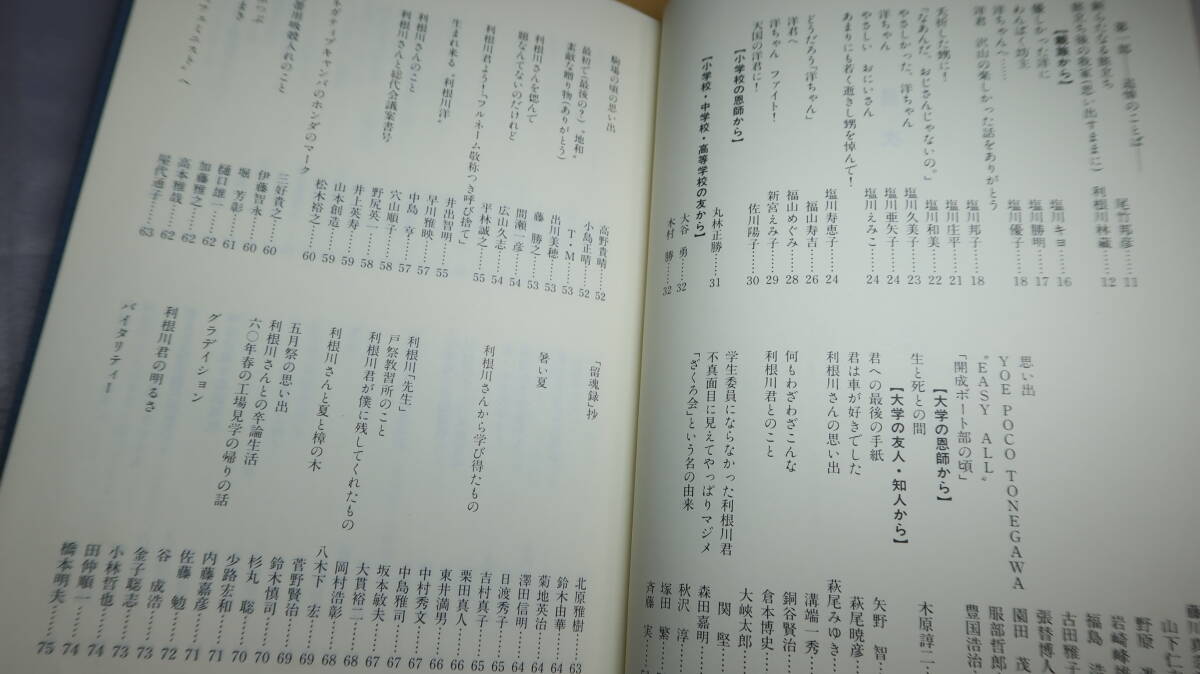 第一部――追悼のことば――
新らたなる旅立ち
尾竹邦彦……11
旅立ち後の我家(思い出すままに)
利根川林蔵……12
【親族から】
優しかった洋に
塩川キヨ……16
わんぱく坊主
塩川勝明……17
洋ちゃんへ……
塩川優子……18
洋君 沢山の楽しかった話をありがとう
塩川邦子……18
夭折した甥に!
塩川庄平……21
「なあんだ、おじさんじゃないの。」
塩川和美……22
やさしかった、洋ちゃん
塩川久美子……23
洋ちゃん
塩川亜矢子……24
やさしい おにいさん
塩川えみこ……24
あまりにも若く逝きし甥を悼んで!
塩川寿恵子……24
どうだろう「洋ちゃん」
福山寿吉……26
洋君へ
福山めぐみ……28
洋ちゃん ファイト!
新宮えみ子……29
天国の洋君に!
佐川陽子……30
【小学校の恩師から】
丸林正勝……31
【小学校・中学校・高等学校の友から】
大谷 勇……32
木村 勝……32
思い出
YOE POCO TONEGAWA
"EASY ALL"
「開成ボート部の頃」
山下仁
岩崎峰雄
福島 浩
古田雅子
張替博人
園田 茂
服部哲郎
豊国浩治
【大学の恩師から】
生と死との間
木原諄二
【大学の友人・知人から】
君への最後の手紙
矢野 智
君は車が好きでした
萩尾暁彦
利根川さんの思い出
萩尾みゆき
溝端一秀
何もわざわざこんな
銅谷賢治
利根川君とのこと
倉本博史
大峽太郎
関 堅
学生委員にならなかった利根川君
森田嘉明
不真面目に見えてやっぱりマジメ
秋沢 淳
「ざくろ会」という名の由来
塚田 繁
斉藤 実
駒場の頃の思い出
高野貴晴……52
最初で(最後の?)"地和"
小島正晴……52
素敵な贈り物(ありがとう)
T・M……53
利根川さんを偲んで
出川美穂……53
題なんてないのだけれど
藤 勝之……53
間瀬一彦……54
広山久志……54
利根川君よう!「フルネーム敬称つき呼び捨て」
平林誠之……55
生まれ来る"利根川洋"
井出哲明……55
早川雅映……57
利根川さんのこと
中島 亨……57
利根川さんと総代会議案書号
穴山順子……58
野尻英一……58
井上英寿……59
山本創造……59
ネガティブキャンバのホンダのマーク
松木裕之……60
三好貴之……60
伊藤智永……60
堀 芳彰……61
樋口雄一……62
加藤雅之……62
高本雅哉……62
屋代恵子……63
「留魂録」抄
北原雅樹……63
鈴木由華……64
菊地英治……64
暑い夏
澤田信明……64
日渡秀子……65
吉村真子……65
利根川さんから学び得たもの
栗田真人……66
東井満男……66
中村秀文……66
利根川「先生」
中島雅司……67
戸祭教習所のこと
坂本敏夫……67
利根川君が僕に残してくれたもの
大貫裕二……67
岡村浩彰……68
利根川さんと夏と樟の木
八木下 宏……68
菅野賢治……69
五月祭の思い出
鈴木慎司……69
利根川さんとの卒論生活
杉丸 聡……70
六〇年春の工場見学の帰りの話
少路宏和……70
内藤嘉彦……71
グラデイション
佐藤 勉……71
谷 成浩……72
利根川君の明るさ
金子聡志……73
小林哲也……73
バイタリティー
田仲順一……74
橋本明夫……75